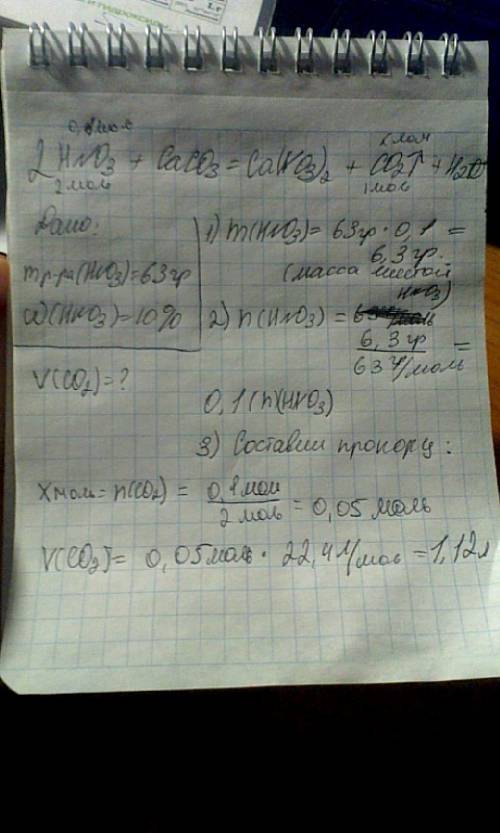 0,1моль х моль
2HNO3 + CaCO3 = Ca(NO3)2 + CO2↑ + H2O
2моль 1моль
Дано:
mр-ра(HNO3)=63гр
ω(HNO3)=10%
V(CO2)=?
1) m(HNO3)= 63гр · 0,1 =
6,3гр.
(масса чистой
HNO3)
2) n(HNO3) =
6,3гр
63г/моль
=
0,1(n)(HNO3)
3) Составим пропорц:
Xмоль= n(CO2) = 0,1мол
2моль = 0,05моль
V(CO2)= 0,05моль· 22,4л/моль =1,12л